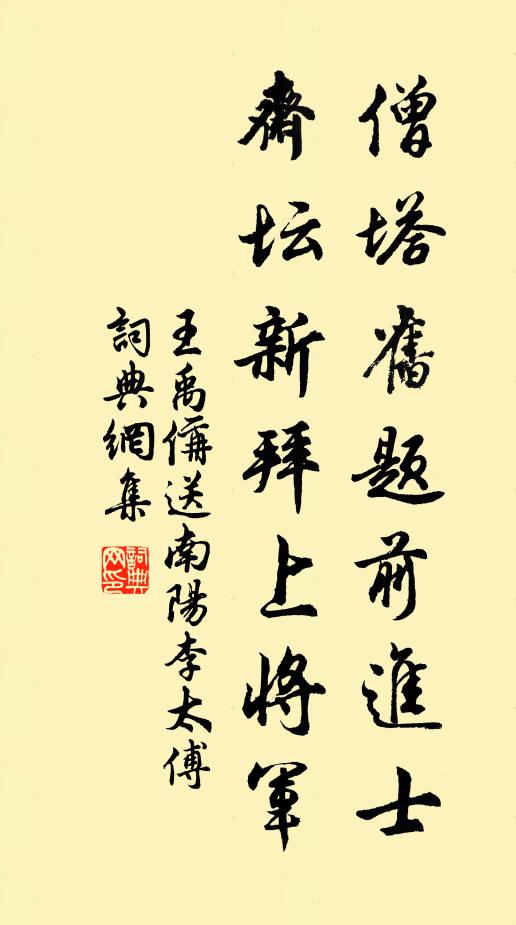 僧塔舊题前進士
齋坛新拜上将军
王禹偁送南陽李太傅
詞典網集
詞典网印